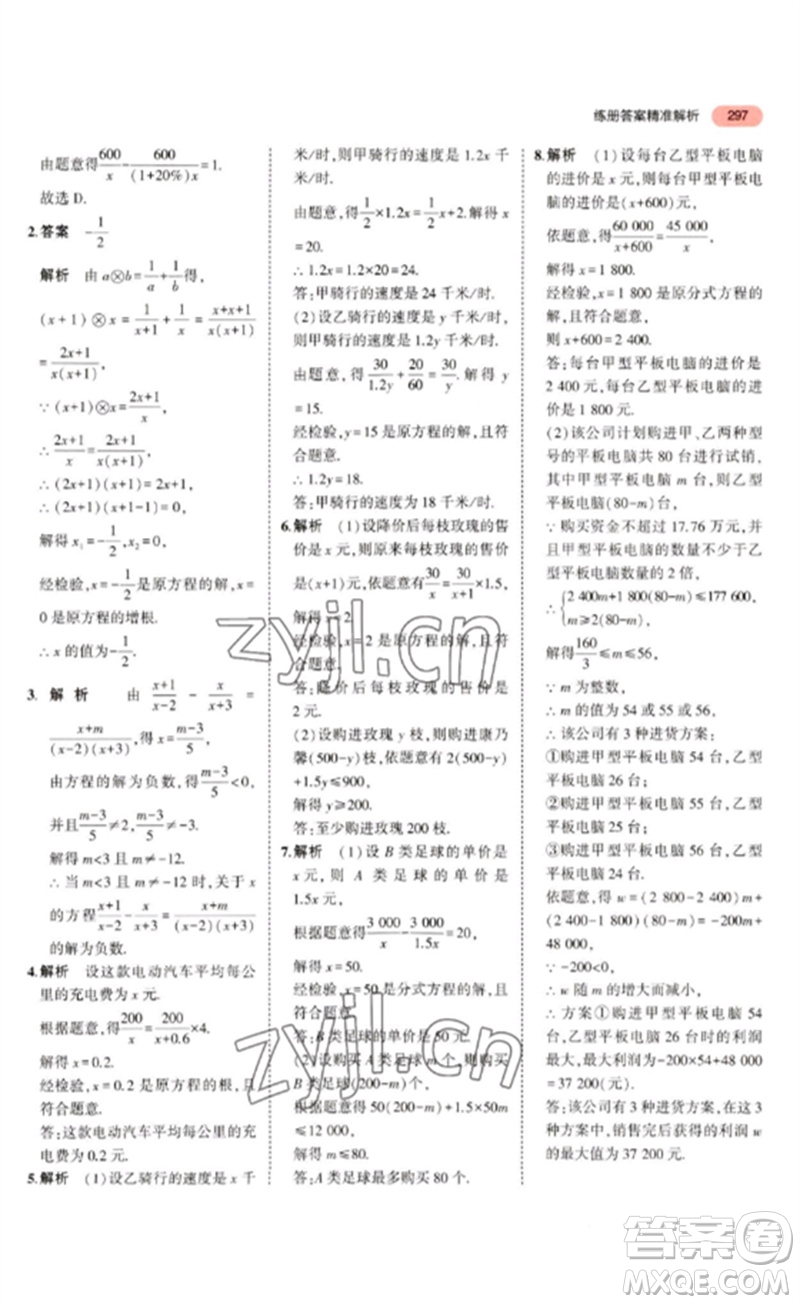 练册答案精准解析 297
由题意得600/x-600/((1+20%)x)=1.
故选 D.
2.答案 -1/2
解析 由 a⊗b=1/a+1/b得,
(x+1)⊗x=1/(x+1)+1/x=(x+x+1)/(x(x+1))
=(2x+1)/(x(x+1)),
∵(x+1)⊗x=(2x+1)/x,
∴(2x+1)/x=(2x+1)/(x(x+1)),
∴(2x+1)(x+1)=(2x+1),
∴(2x+1)(x+1-1)=0,
解得 x₁=-1/2,x₂=0,
经检验,x=-1/2是原方程的解,x=
0是原方程的增根.
∴x 的值为-1/2.
3. 解析 由 (x+1)/(x-2)-x/(x+3)=
(x+m)/((x-2)(x+3)),得 x=(m-3)/5,
由方程的解为负数,得(m-3)/5<0,
并且(m-3)/5≠2,(m-3)/5≠-3.
解得 m<3 且 m≠-12.
∴当 m<3 且 m≠-12 时,关于 x
的方程(x+1)/(x-2)-x/(x+3)=(x+m)/((x-2)(x+3))
的解为负数.
4.解析 设这款电动汽车平均每公
里的充电费为 x 元.
根据题意,得200/x=200/(x+0.6)×4.
解得 x=0.2.
经检验,x=0.2 是原方程的根,且
符合题意.
答:这款电动汽车平均每公里的充
电费为 0.2 元.
5.解析 (1)设乙骑行的速度是 x 千
米/时,则甲骑行的速度是 1.2x 千
米/时,
由题意,得1/2×1.2x=1/2x+2.解得 x
=20.
∴1.2x=1.2×20=24.
答:甲骑行的速度是 24 千米/时.
(2)设乙骑行的速度是 y 千米/时,
则甲骑行的速度是 1.2y 千米/时,
由题意,得30/1.2y+20/60=30/y.解得 y
=15.
经检验,y=15 是原方程的解,且符
合题意.
∴1.2y=18.
答:甲骑行的速度为 18 千米/时.
6.解析 (1)设降价后每枝玫瑰的售
价是 x 元,则原来每枝玫瑰的售价
是(x+1)元,依题意有30/x=30/(x+1)×1.5,
解得 x=2.
经检验,x=2 是原方程的解,且符
合题意.
答:降价后每枝玫瑰的售价是
2 元.
(2)设购进玫瑰 y 枝,则购进康乃
馨(500-y)枝,依题意有 2(500-y)
+1.5y≤900,
解得 y≥200.
答:至少购进玫瑰 200 枝.
7.解析 (1)设 B 类足球的单价是
x 元,则 A 类足球的单价是
1.5x 元,
根据题意得3 000/x-3 000/1.5x=20,
解得 x=50.
经检验,x=50 是原方程的解,且
符合题意.
答:B 类足球的单价是 50 元.
(2)设购买 A 类足球 m 个,则购买
B 类足球(200-m)个,
根据题意得 50(200-m)+1.5×50m
≤12 000,
解得 m≤80.
答:A 类足球最多购买 80 个.
8.解析 (1)设每台乙型平板电脑
的进价是 x 元,则每台甲型平板电
脑的进价是(x+600)元,
依题意,得60 000/(x+600)=45 000/x,
解得 x=1 800.
经检验,x=1 800 是原分式方程的
解,且符合题意,
则 x+600=2 400.
答:每台甲型平板电脑的进价是
2 400 元,每台乙型平板电脑的进
价是 1 800 元.
(2)该公司计划购进甲、乙两种型
号的平板电脑共 80 台进行试销,
其中甲型平板电脑 m 台,则乙型
平板电脑(80-m)台,
∵购买资金不超过 17.76 万元,
并且甲型平板电脑的数量不少于乙
型平板电脑数量的 2 倍,
∴{2 400m+1 800(80-m)≤177 600,
m≥2(80-m),
解得160/3≤m≤56,
∵m 为整数,
∴m 的值为 54 或 55 或 56,
∴该公司有 3 种进货方案:
①购进甲型平板电脑 54 台,乙型
平板电脑 26 台;
②购进甲型平板电脑 55 台,乙型
平板电脑 25 台;
③购进甲型平板电脑 56 台,乙型
平板电脑 24 台.
依题意,得 w=(2 800-2 400)m+
(2 400-1 800)(80-m)=-200m+
48 000,
∵-200<0,
∴w 随 m 的增大而减小,
∴方案①购进甲型平板电脑 54
台,乙型平板电脑 26 台时的利润
最大,最大利润为-200×54+48 000
=37 200(元).
答:该公司有 3 种进货方案;该公
司售完后获得的最大利润 w
的最大值为 37 200 元.
zyjl.cn
zyjl.cn
答案卷
MXQE.COM